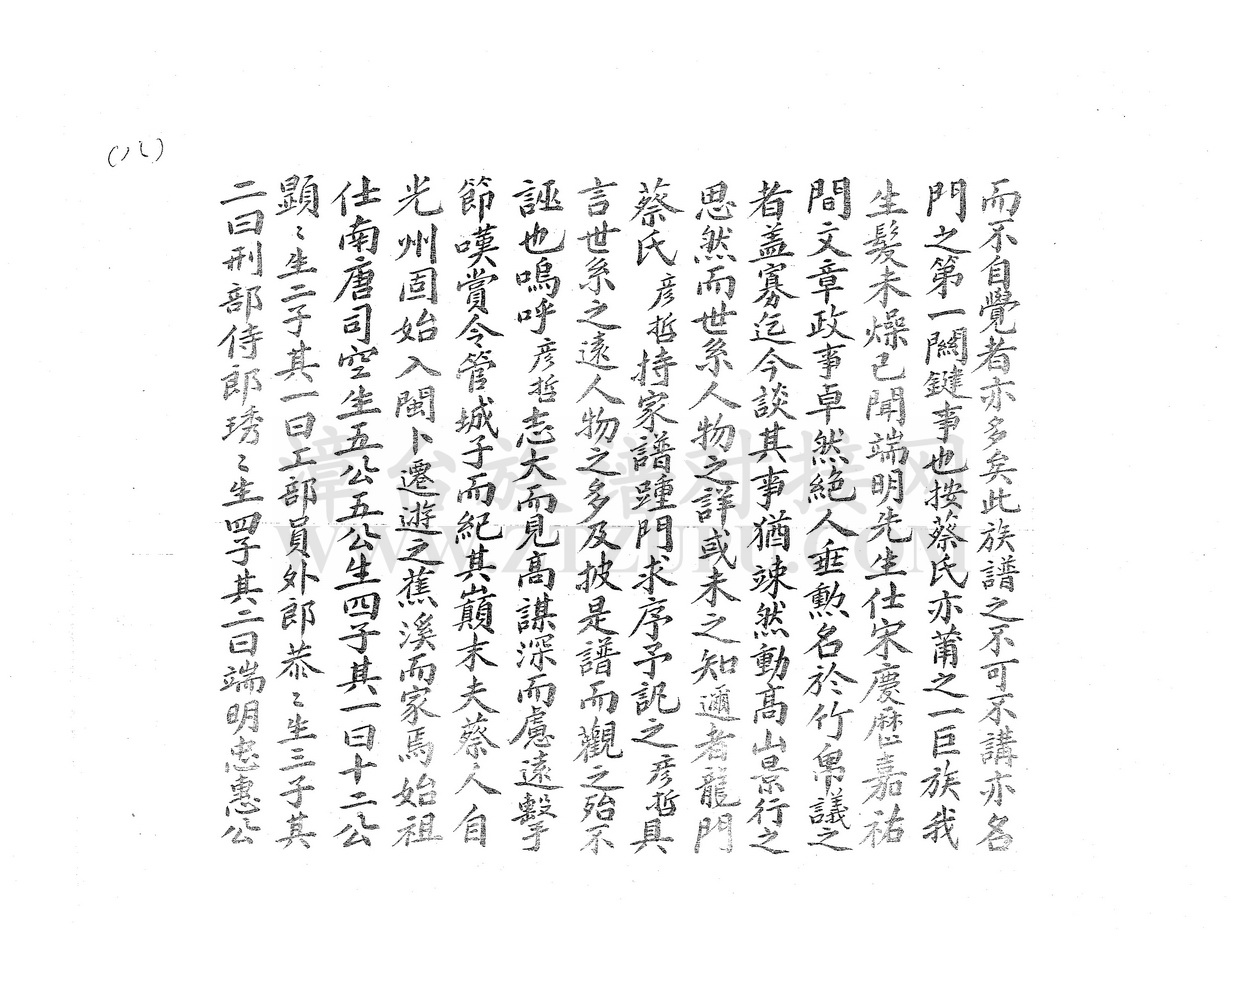 (八)
而不自覺者亦多矣此族譜之不可不講亦名
門之第一關鍵事也按蔡氏亦莆之一巨族我
生髮未燥已聞端明先生仕宋慶曆嘉祐
間文章政事卓然絕人垂勲名於竹帛議之
者盖寡迄今談其事猶竦然動高山景行之
思然而世系人物之詳或未之知邇者龍門
蔡氏彦哲持家譜踵門求序予記之彦哲具
言世系之遠人物之多及披是譜而觀之殆不
誣也嗚呼彦哲志大而見高謀深而慮遠擊
節嘆賞令管城子而紀其巔末夫蔡人自
光州固始入閩卜遷遊之蕉溪而家焉始祖
仕南唐司空生五公五公生四子其一曰十二公
顕〻生二子其一曰工部員外郎恭〻生三子其
二曰刑部侍郎琇〻生四子其二曰端明忠惠公
章台族譜對接网
WWW.ZTZUPU.COM